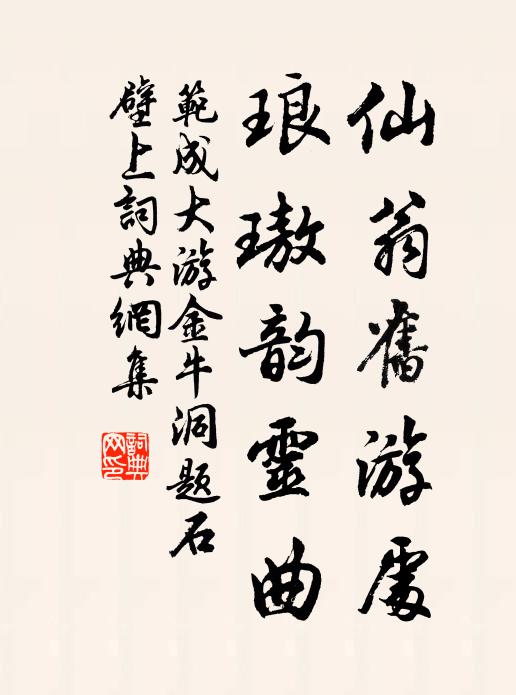 仙翁舊游處
琅璈韵靈曲
範成大游金牛洞題石
壁上詞典網集
詞典網印